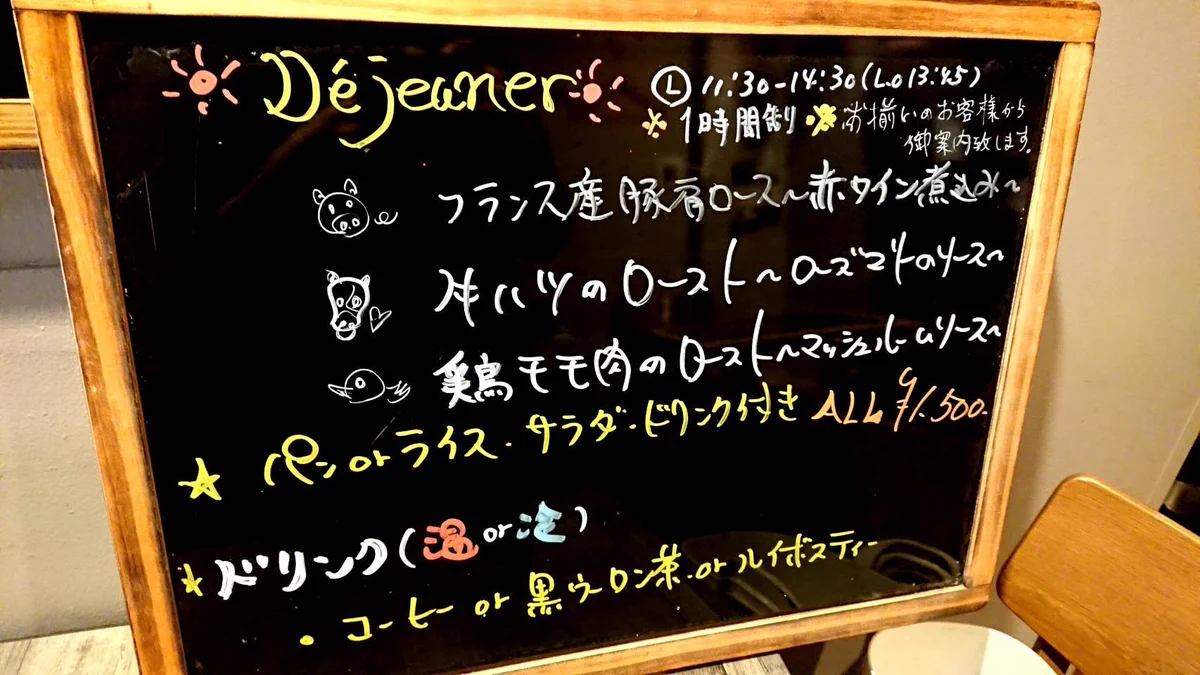 Déjeuner
Ⓛ 11:30-14:30(L.o 13:45)
1時間制 お揃いのお客様から
御案内致します。
フランス産豚肩ロース〜赤ワイン煮込み〜
牛ハツのロースト〜ローズマリーのソース〜
鶏モモ肉のロースト〜マッシュルームソース〜
★ パン or ライス・サラダ・ドリンク付き ALL ¥1,500-
★ドリンク(温 or 冷)
・コーヒー or 黒ウーロン茶 or ルイボスティー